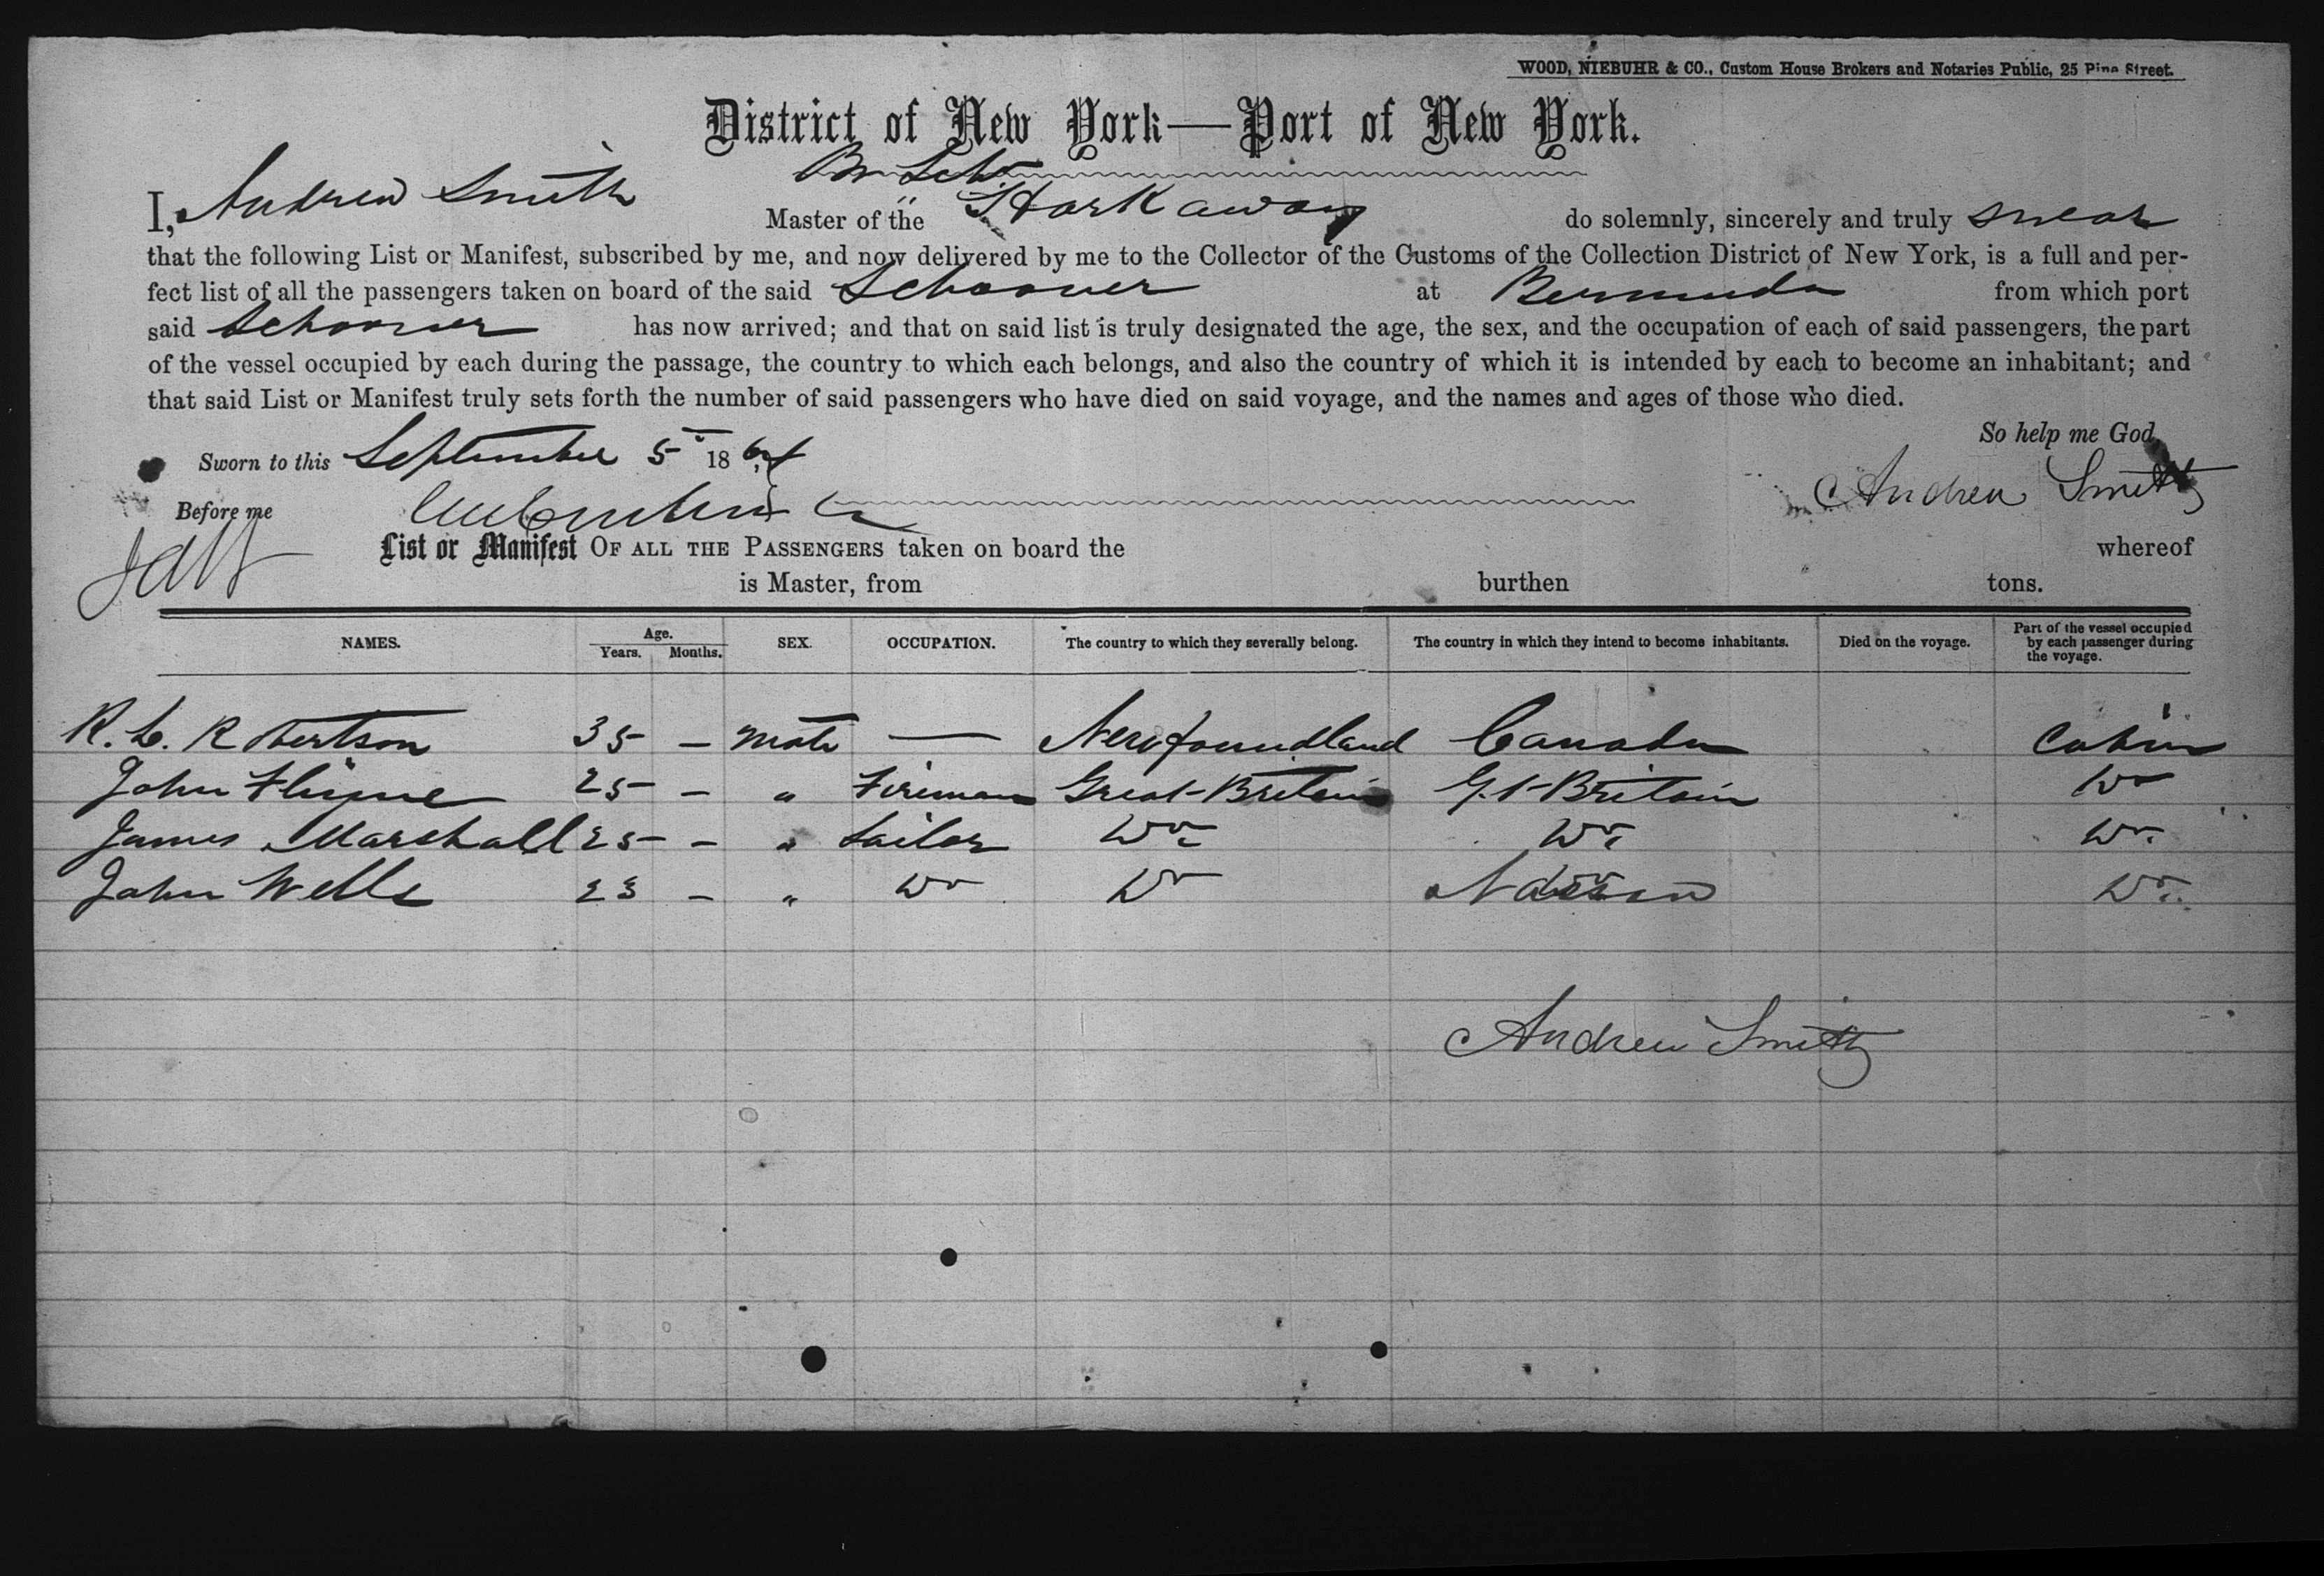 WOOD, NIEBUHR & CO., Custom House Brokers and Notaries Public, 25 Pine Street.
District of New York—Port of New York.
Br Schr
I, Andrew Smith Master of the Harkaway do solemnly, sincerely and truly swear
that the following List or Manifest, subscribed by me, and now delivered by me to the Collector of the Customs of the Collection District of New York, is a full and per-
fect list of all the passengers taken on board of the said Schooner at Bermuda from which port
said Schooner has now arrived; and that on said list is truly designated the age, the sex, and the occupation of each of said passengers, the part
of the vessel occupied by each during the passage, the country to which each belongs, and also the country of which it is intended by each to become an inhabitant; and
that said List or Manifest truly sets forth the number of said passengers who have died on said voyage, and the names and ages of those who died.
So help me God,
Sworn to this September 5 1864
Andrew Smith
Before me
List or Manifest OF ALL THE PASSENGERS taken on board the whereof
is Master, from burthen tons.
NAMES. Age. Years. Months. SEX. OCCUPATION. The country to which they severally belong. The country in which they intend to become inhabitants. Died on the voyage. Part of the vessel occupied by each passenger during the voyage.
R. Robertson 35 – Male — Newfoundland Canada Cabin
John 25 – " Fireman Great-Britain Gt-Britain Do
James Marshall 25 – " Sailor Do Do Do
John Wells 23 – " Do Do Nassau Do
Andrew Smith